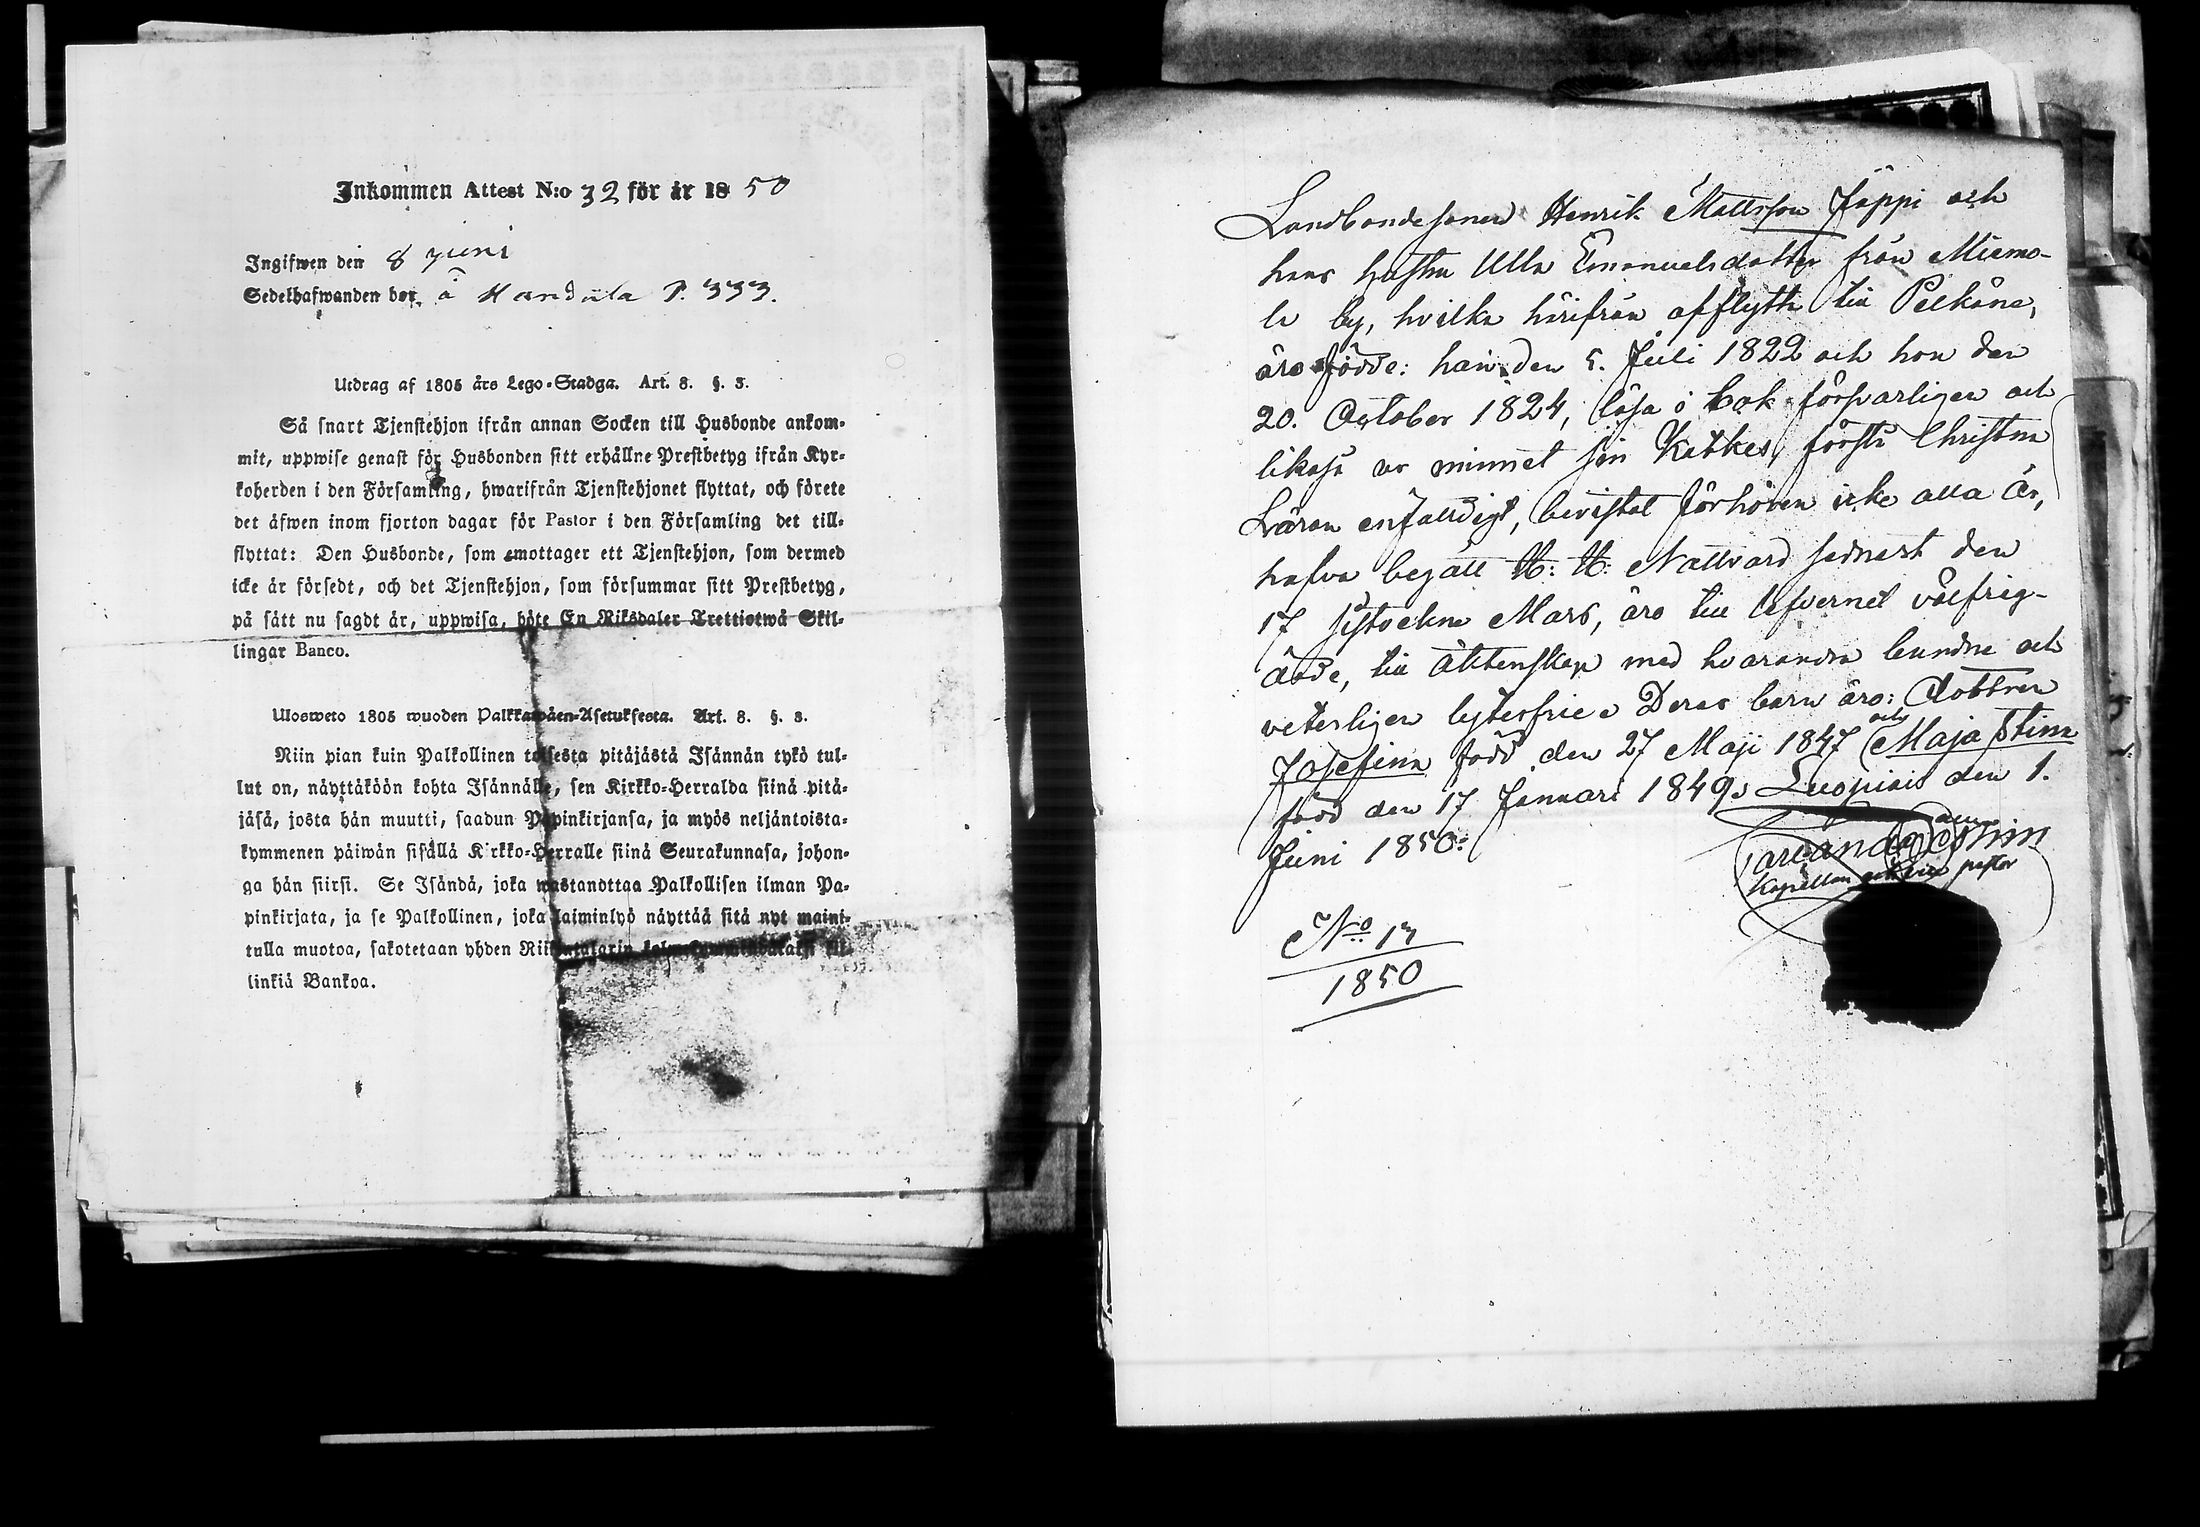 Inkommen Attest N:o 32 för år 1850
Ingifwen den 8 Juni
Sedelhafwanden bor å Handula P. 333.
Utdrag af 1805 års Lego-Stadga. Art. 8. §. 3.
Så snart Tjenstehjon ifrån annan Socken till Husbonde ankom-
mit, uppwise genast för Husbonden sitt erhållne Prestbetyg ifrån Kyr-
koherden i den Församling, hwarifrån Tjenstehjonet flyttat, och förete
det äfwen inom fjorton dagar för Pastor i den Församling det till-
flyttat: Den Husbonde, som emottager ett Tjenstehjon, som dermed
icke är försedt, och det Tjenstehjon, som försummar sitt Prestbetyg,
på sätt nu sagdt är, uppwisa, böte En Riksdaler Trettiotwå Skil-
lingar Banco.
Ulosweto 1805 wuoden Palkkawäen-Asetuksesta. Art. 8. §. 3.
Niin pian kuin Palkollinen toisesta pitäjästä Isännän tykö tul-
lut on, näyttäköön kohta Isännälle, sen Kirkko-Herralda siinä pitä-
jäsä, josta hän muutti, saadun Papinkirjansa, ja myös neljäntoista-
kymmenen päiwän sisällä Kirkko-Herralle siinä Seurakunnasa, johon-
ga hän siirsi. Se Isändä, joka wastanottaa Palkollisen ilman Pa-
pinkirjata, ja se Palkollinen, joka laiminlyö näyttää sitä nyt maini-
tulla muotoa, sakotetaan yhden Riikintalarin kolmekymmendäkaksi kil-
linkiä Bankoa.
Landbondesonen Henrik Mattsson Jäppi och
hans hustru Ulla Emanuelsdotter från Miemo-
la by, hvilka härifrån afflytta till Pelkäne,
äro födde: han den 5. Juli 1822 och hon den
20. October 1824, läsa i bok försvarligen och
likaså ur minnet sin Katkes, förstå Christna
Läran enfaldigt, bevistat förhören icke alla år,
hafva begått H: H: Nattvard sednast den
17 sistvekne Mars, äro till lefvernet välfrig-
dade, till äktenskap med hvarandra bundne och
veterligen lytesfrie. Deras barn äro: dottren
Josefina född den 27 Maji 1847 och Maja Stina
född den 17 Januari 1849. Luopiois den 1.
Juni 1850.
Kapellan pastor
No 17
1850